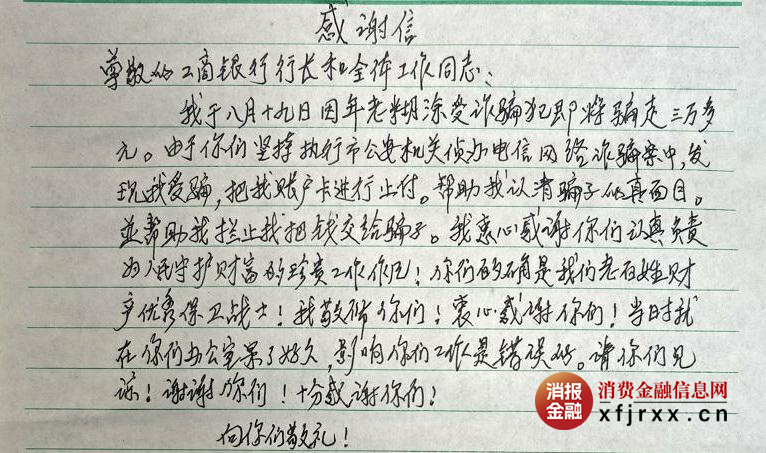 感谢信
尊敬的工商银行行长和全体工作同志：
我于八月十九日因年老糊涂受诈骗犯即将骗走三万多
元。由于你们坚持执行市公安机关侦办电信网络诈骗案中,发
现我受骗,把我账户卡进行止付。帮助我认清骗子的真面目。
并帮助我拦止我把钱交给骗子。我衷心感谢你们认真负责
为人民守护财富的珍贵工作作风！你们的确是我们老百姓财
产优秀保卫战士！我敬佩你们！衷心感谢你们！当时我
在你们办公室呆了好久,影响你们工作是错误的。请你们见
谅！谢谢你们！十分感谢你们！
向你们敬礼！
消报
金融
消费金融信息网
xfjrxx.cn